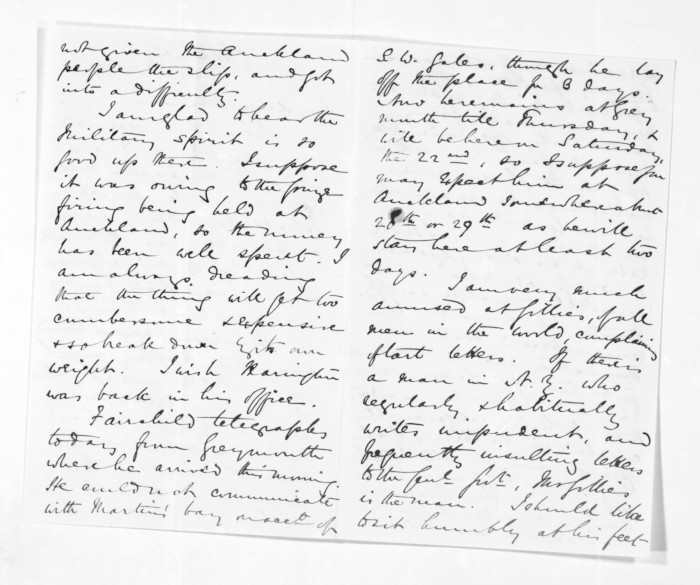 not given the Auckland
people the slip, and got
into a difficulty.
I am glad to hear the
Military spirit is so
good up there. I suppose
it was owing to the prize
firing being held at
Auckland, so the money
has been well spent. I
am always dreading
that the thing will get too
cumbersome & expensive
& so break down by its own
weight. I wish Harington
was back in his office.
Fairchild telegraphs
today from Greymouth
where he arrived this morning.
He could not communicate
with Martin's bay on acct of
S.W. gales, though he lay
off the place for 3 days.
Now he remains at Grey
mouth till Thursday, &
will be here on Saturday,
the 22nd, so I suppose you
may expect him at
Auckland somewhere about
28th or 29th as he will
stay here at least two
days.
I am very much
amused at Gillies, of all
men in the world, complaining
of tart letters. If there is
a man in N.Z. who
regularly & habitually
writes impudent, and
frequently insulting letters
to the Genl Govt, Mr Gillies
is the man. I should like
to sit humbly at his feet